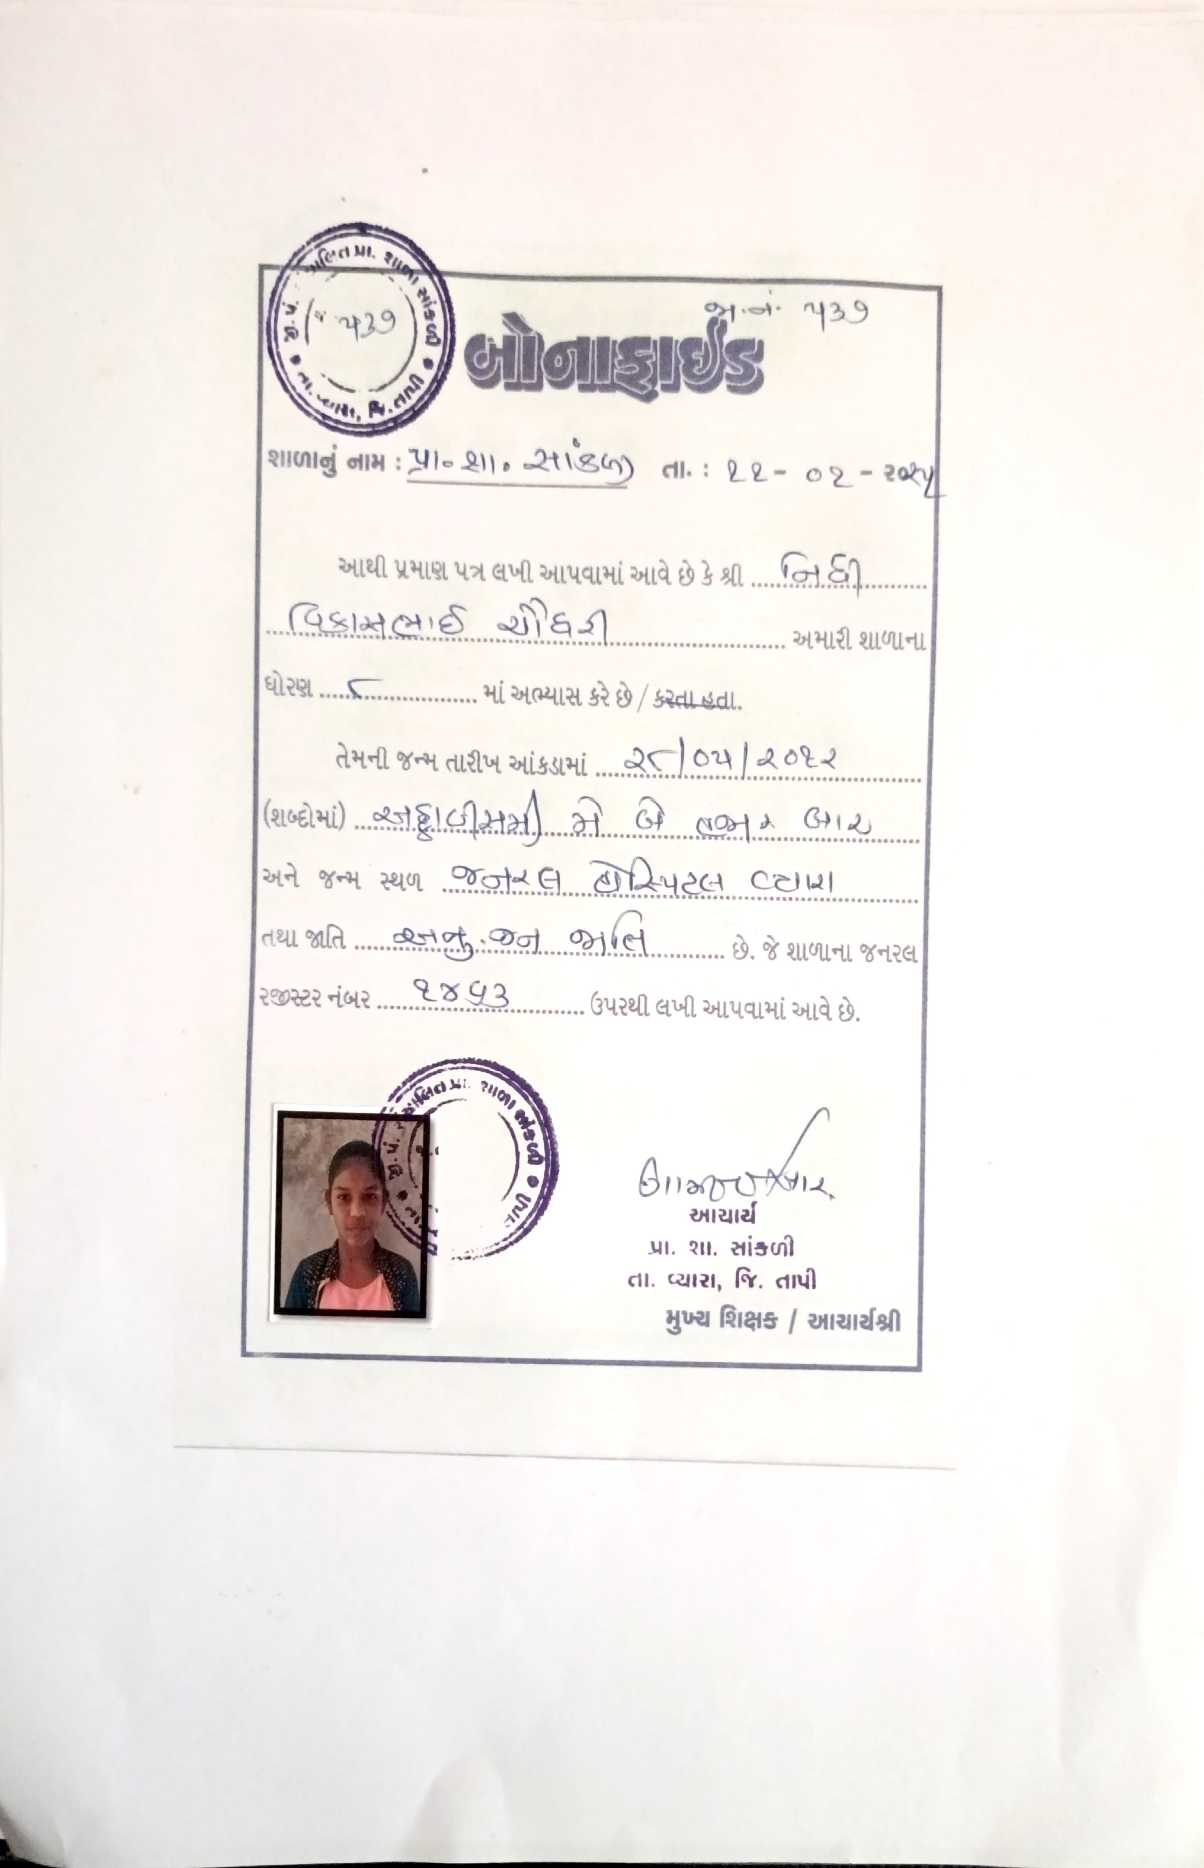 જિ. પં. સંચાલિત પ્રા. શાળા સાંકળી
તા. વ્યારા, જિ. તાપી
૫૩૭
જા.નં. ૫૩૭
બોનાફાઈડ
શાળાનું નામ : પ્રા. શા. સાંકળી તા. : ૧૧ - ૦૨ - ૨૦૨૫
આથી પ્રમાણ પત્ર લખી આપવામાં આવે છે કે શ્રી નિધી
વિકાસભાઈ ચૌધરી અમારી શાળાના
ધોરણ ૮ માં અભ્યાસ કરે છે / કરતા હતા.
તેમની જન્મ તારીખ આંકડામાં ૨૮/૦૫/૨૦૧૨
(શબ્દોમાં) અઠ્ઠાવીસમી મે બે હજાર બાર
અને જન્મ સ્થળ જનરલ હોસ્પિટલ વ્યારા
તથા જાતિ અનુ. જન જાતિ છે. જે શાળાના જનરલ
રજીસ્ટર નંબર ૧૪૫૩ ઉપરથી લખી આપવામાં આવે છે.
જિ. પં. સંચાલિત પ્રા. શાળા સાંકળી
આચાર્ય
પ્રા. શા. સાંકળી
તા. વ્યારા, જિ. તાપી
મુખ્ય શિક્ષક / આચાર્યશ્રી